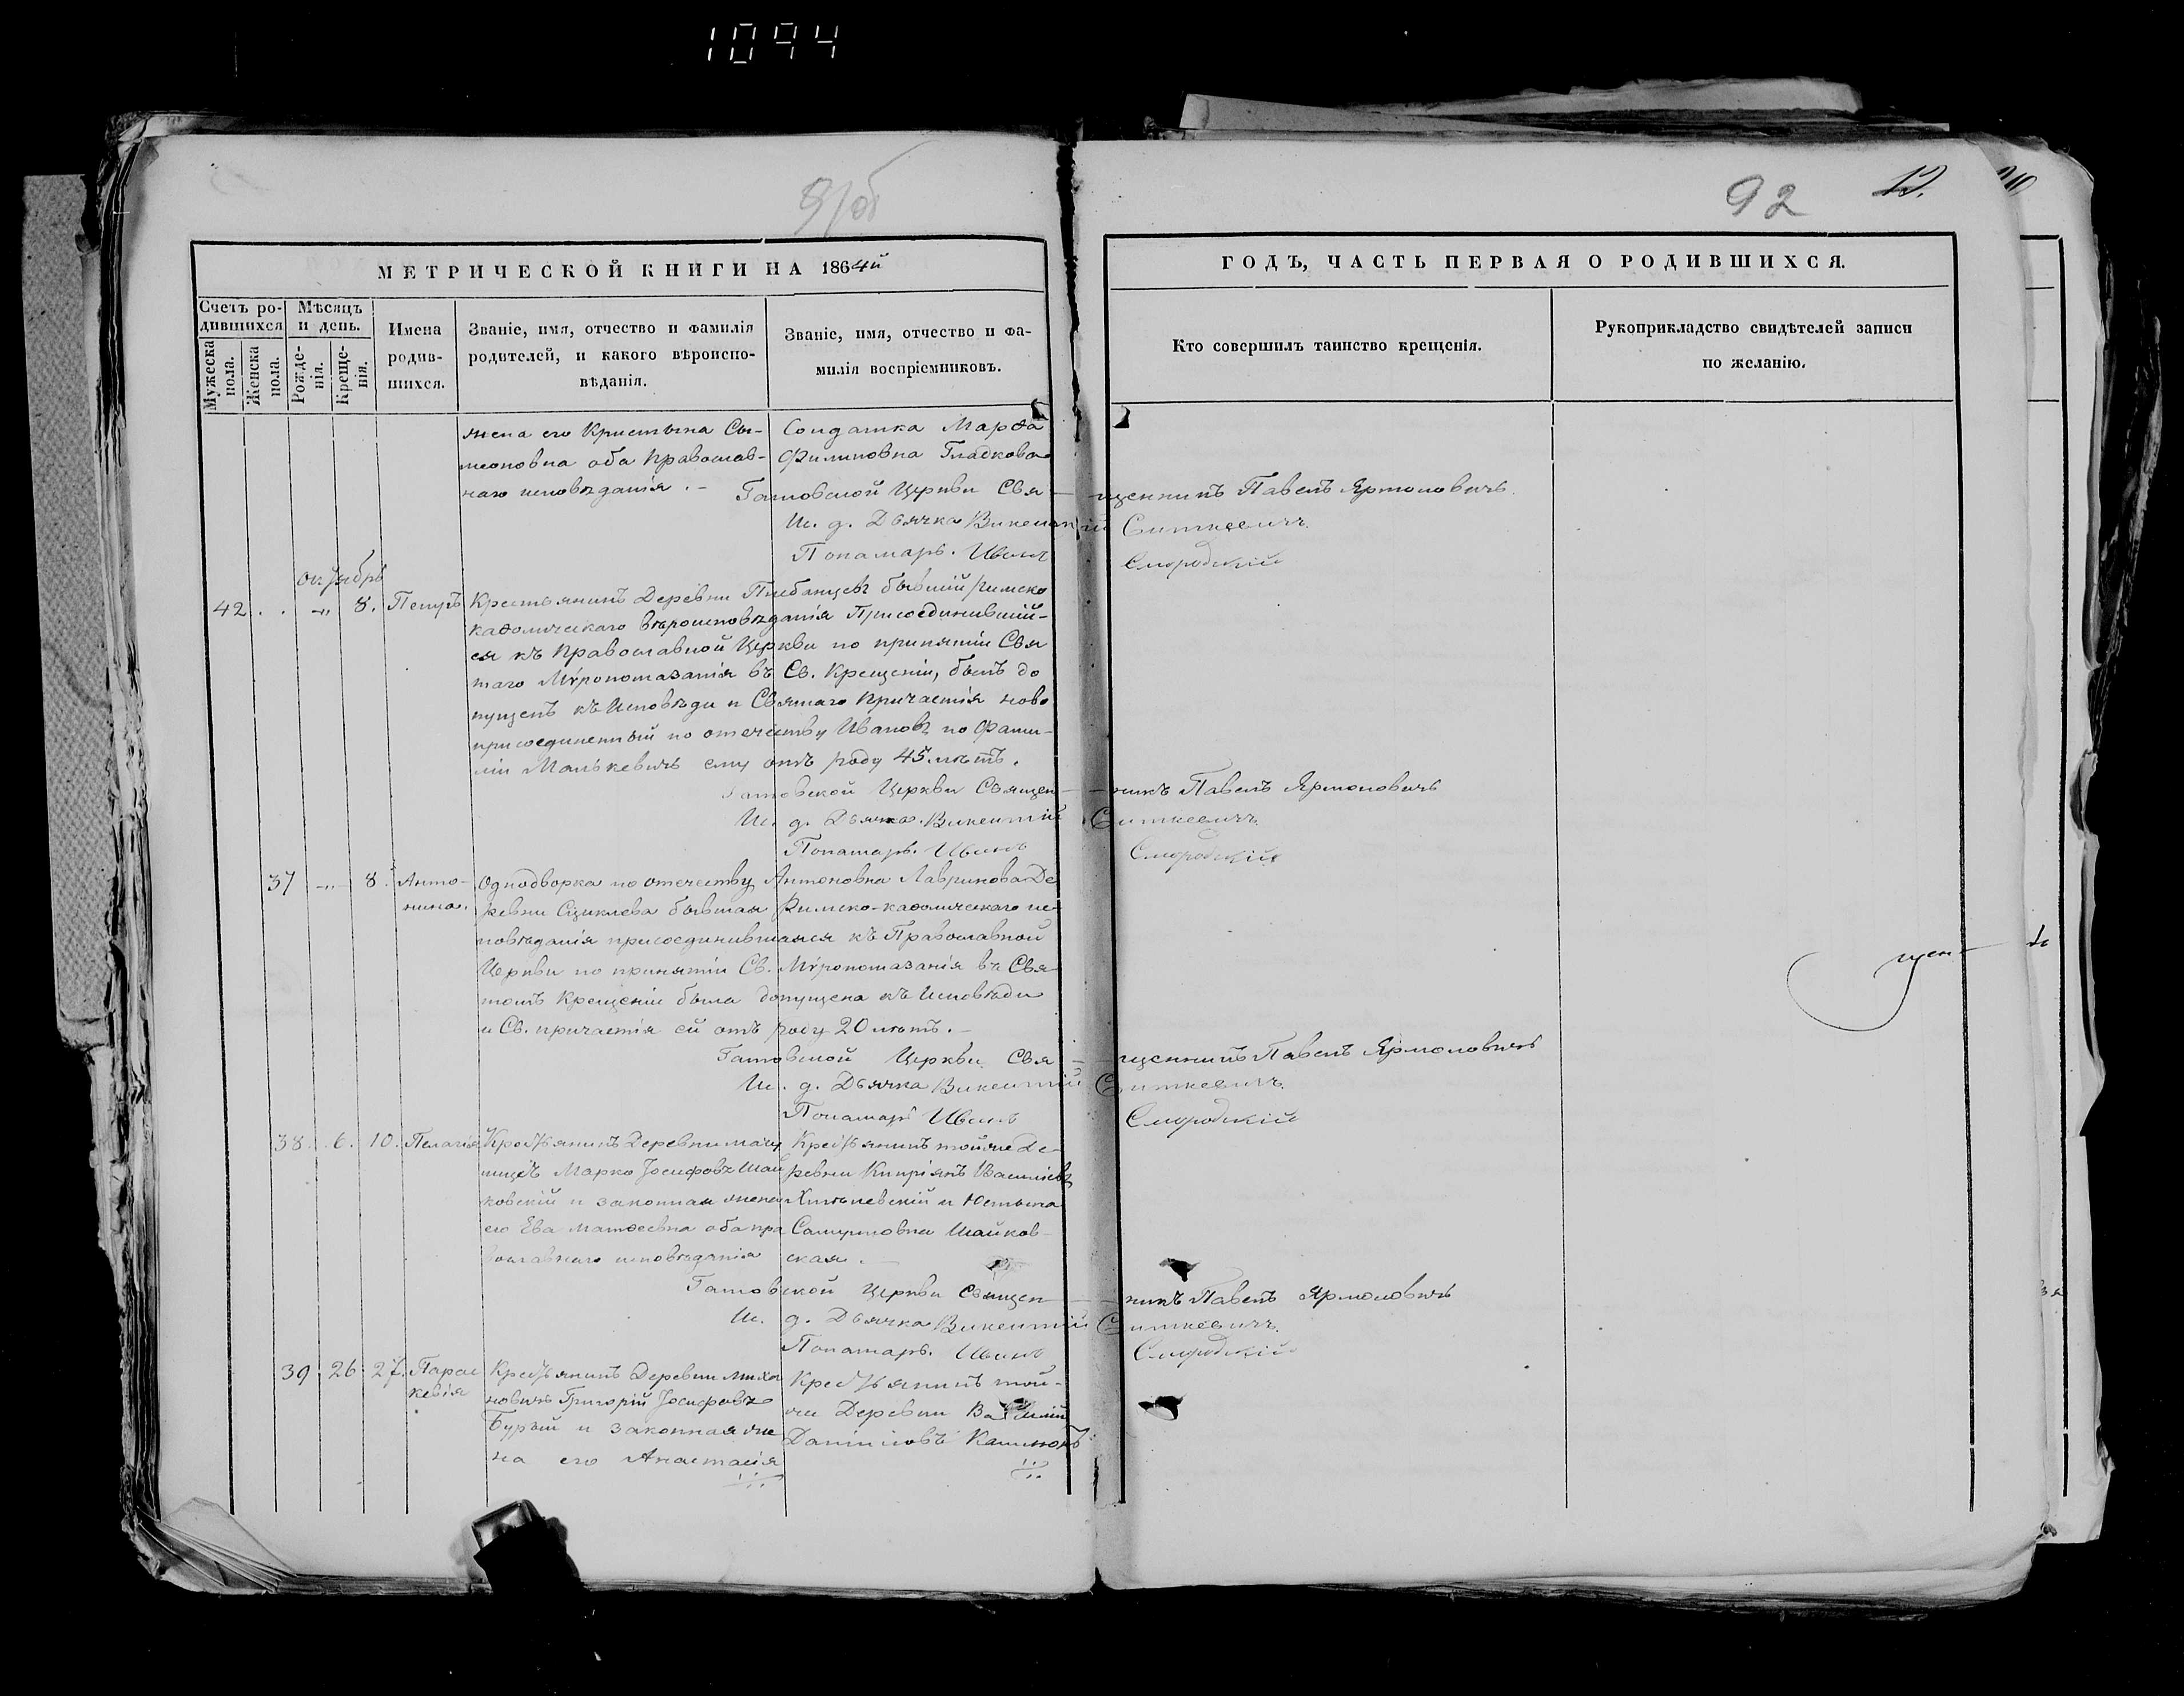 1094
91об
92
12.
МЕТРИЧЕСКОЙ КНИГИ НА 1864й
ГОДЪ, ЧАСТЬ ПЕРВАЯ О РОДИВШИХСЯ.
Счетъ родившихся
Мужеска пола.
Женска пола.
Мѣсяцъ и день.
Рожденія.
Крещенія.
Имена родившихся.
Званіе, имя, отчество и фамилія родителей, и какого вѣроисповѣданія.
Званіе, имя, отчество и фамилія воспріемниковъ.
Кто совершилъ таинство крещенія.
Рукоприкладство свидѣтелей записи по желанію.
жена его Кристына Си-
меоновна оба Православ-
наго исповѣданія .-
Солдатка Марѳа
Филиповна Гладкова
Гатовской Церкви Свя- щенникъ Павелъ Ярмоловичъ.
И. д. Дьячка Викентій Ситкевичъ.
Понамарь. Иванъ Смородскій
октябрь
42 . . -"- 8. Петръ Крестьянинъ Деревни бывшій Римско
католическаго вѣроисповѣданія Присоединившій-
ся къ Православной Церкви по принятіи Свя
таго Мѵропомазанія въ Св. Крещеніи, былъ до
пущенъ къ Исповѣди и Святаго Причастія ново
присоединенный по отечеству Ивановъ по Фами-
ліи Малькевичъ ему отъ роду 45 лѣтъ.
Гатовской Церкви Священ- никъ Павелъ Ярмоловичъ
И. д. Дьячка Викентій Ситкевичъ.
Понамарь. Иванъ Смородскій
37 -"- 8. Анто-
нина.
Однодворка по отечеству Антоновна Лавринова Де
ревни Сциклева бывшая Римско-католическаго ис-
повѣданія присоединившаяся къ Православной
Церкви по принятіи Св. Мѵропомазанія въ Свя-
томъ Крещеніи была допущена къ Исповѣди
и Св. причастія ей отъ роду 20 лѣтъ.-
Гатовской Церкви Свя- щенникъ Павелъ Ярмоловичъ
И. д. Дьячка Викентій Ситкевичъ.
Понамарь Иванъ Смородскій
щен-
38. 6. 10. Пелагія
Крестьянинъ Деревни Мацѣ
вицъ Марко Іосифовъ Шай
ковскій и законная жена
его Ева Матѳеевна оба пра
вославнаго исповѣданія
Крестьянинъ тойже Де-
ревни Кипріянъ Васильевъ
Хмѣлевскій и Юстына
Самуиловна Шайков-
ская.
Гатовской Церкви Священ- никъ Павелъ Ярмоловичъ
И. д. Дьячка Викентій Ситкевичъ.
Понамарь. Иванъ Смородскій
39 26 27. Парас
кевія
Крестьянинъ Деревни Миха
новичъ Григорій Іосифовъ
Бурый и законная же
на его Анастасія
Крестьянинъ той-
же Деревни Василій
Даніиловъ